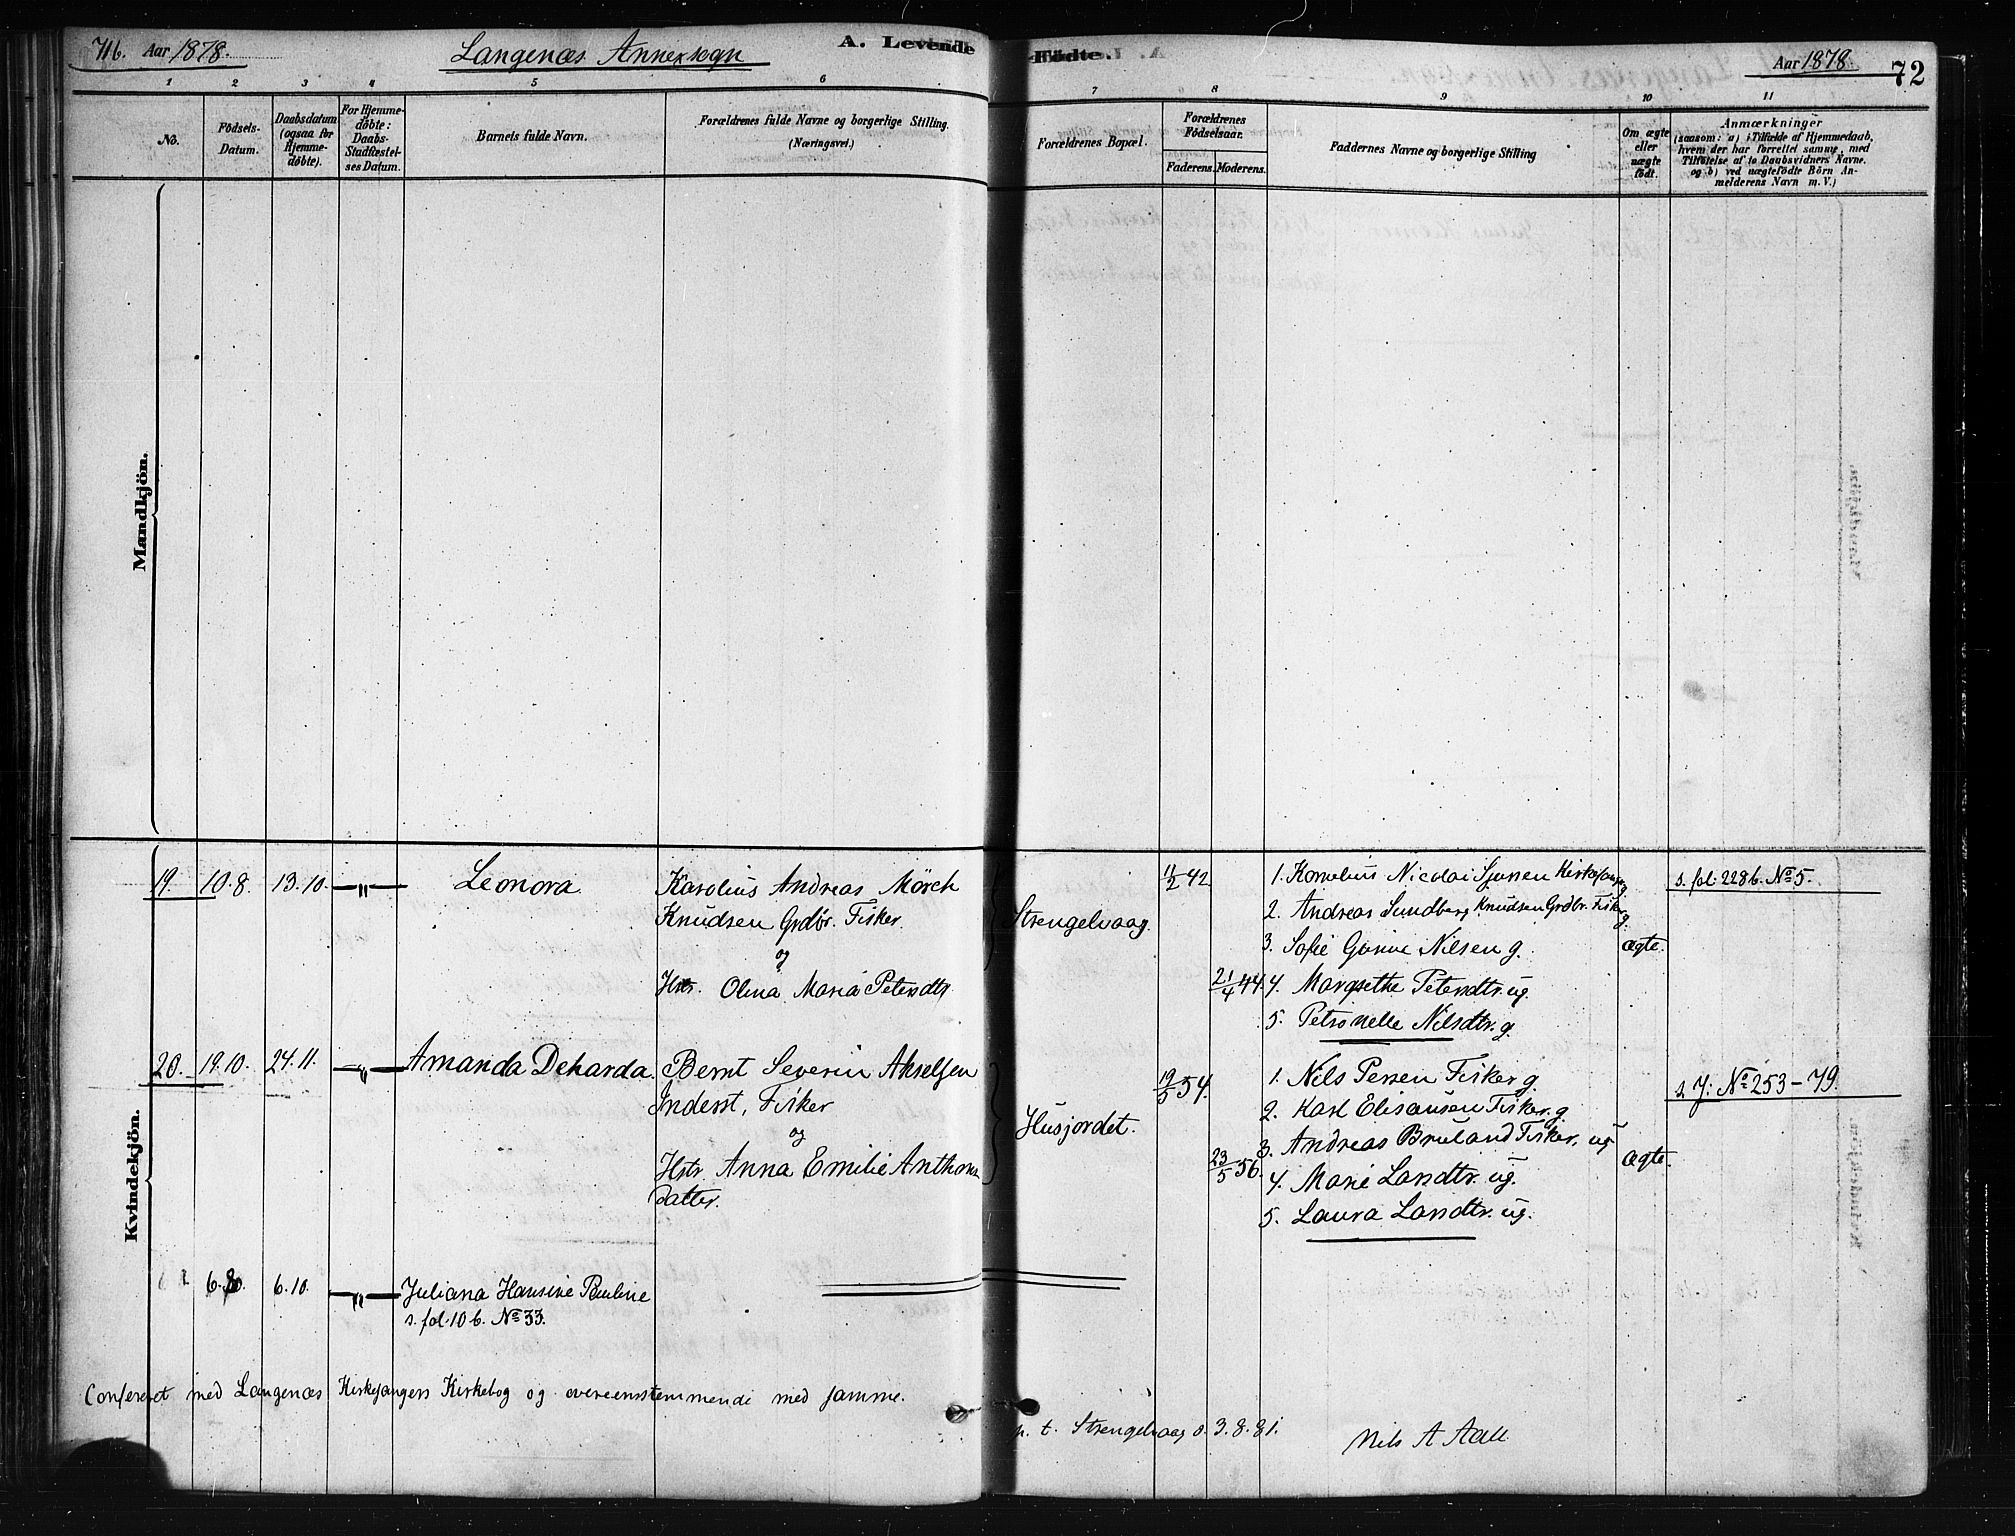 71b. Aar 1878. Langenæs Annexsogn A. Levende Födte. Aar 1878. 72
1 2 3 4 5 6 7 8 9 10 11
No.
Födsels-Datum.
Daabsdatum (ogsaa for Hjemme-döbte).
For Hjemme-döbte: Daabs-Stadfæstel-ses Datum.
Barnets fulde Navn.
Forældrenes fulde Navne og borgerlige Stilling. (Næringsvei.)
Forældrenes Bopæl.
Forældrenes Födselsaar.
Faderens. Moderens.
Faddernes Navne og borgerlige Stilling
Om ægte eller uægte födt.
Anmærkninger
(saasom: a) i Tilfælde af Hjemmedaab,
hvem der har forrettet samme, med
Tilföielse af to Daabsvidners Navne.
og b) ved uægtefödte Börn An-
melderens Navn m. V.)
Mandkjön.
Kvindekjön.
19. 10.8. 13.10. —"— Leonora
Karolius Andreas Mörch
Knudsen Grdbr. Fisker.
og
Hstr. Olina Maria Petersdtr.
Strengelvaag.
11/2 42
21/4 44.
1. Kornelius Nicolai Sjursen Kirkesanger g
2. Andreas Sundberg Knudsen Grdbr. Fisker g.
3. Sofie Gurine Nilsen g.
4. Margrethe Petersdtr. ug.
5. Petronelle Nilsdtr. g.
ægte.
s. fol. 228 b. No 5.
20. 19.10. 24.11. —"— Amanda Deharda.
Bernt Severin Akselsen
Inderst, Fisker
og
Hstr. Anna Emilie Anthona
Datter.
Husjordet.
19/5 54.
23/5 56.
1. Nils Persen Fisker g.
2. Karl Elisæusen Fisker. g.
3. Andreas Bruland Fisker. ug
4. Marie Larsdtr. ug.
5. Laura Larsdtr. ug.
ægte.
s J: No 253-79.
6.8. 6.10. —"— Juliana Hansine Pauline
s. fol. 10 b. No 33.
Confereret med Langenæs Kirkesangers Kirkebog og overeensstemmende med samme.
p. t. Strengelvaag d. 3.8.81. Nils A Aall